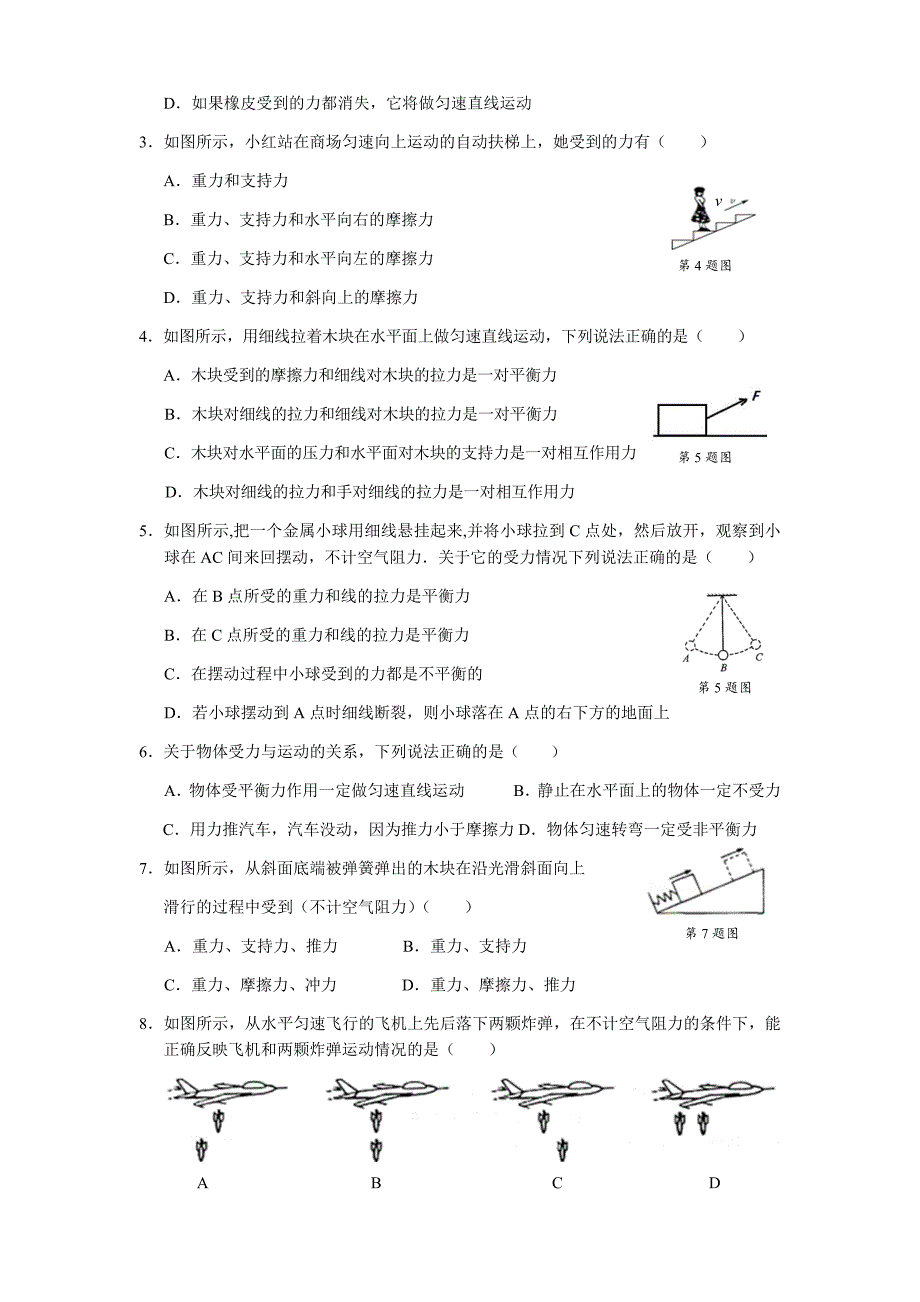 D．如果橡皮受到的力都消失，它将做匀速直线运动
3．如图所示，小红站在商场匀速向上运动的自动扶梯上，她受到的力有（　　）
A．重力和支持力
B．重力、支持力和水平向右的摩擦力
C．重力、支持力和水平向左的摩擦力
D．重力、支持力和斜向上的摩擦力
v v
第 4 题图
4．如图所示，用细线拉着木块在水平面上做匀速直线运动，下列说法正确的是（　　）
A．木块受到的摩擦力和细线对木块的拉力是一对平衡力
B．木块对细线的拉力和细线对木块的拉力是一对平衡力
C．木块对水平面的压力和水平面对木块的支持力是一对相互作用力
D．木块对细线的拉力和手对细线的拉力是一对相互作用力
F
第 5 题图
5．如图所示,把一个金属小球用细线悬挂起来,并将小球拉到 C 点处，然后放开，观察到小
球在 AC 间来回摆动，不计空气阻力．关于它的受力情况下列说法正确的是（　　）
A．在 B 点所受的重力和线的拉力是平衡力
B．在 C 点所受的重力和线的拉力是平衡力
C．在摆动过程中小球受到的力都是不平衡的
D．若小球摆动到 A 点时细线断裂，则小球落在 A 点的右下方的地面上
A B C
第 5 题图
6．关于物体受力与运动的关系，下列说法正确的是（　　）
A．物体受平衡力作用一定做匀速直线运动　　　B．静止在水平面上的物体一定不受力
C．用力推汽车，汽车没动，因为推力小于摩擦力 D．物体匀速转弯一定受非平衡力
7．如图所示，从斜面底端被弹簧弹出的木块在沿光滑斜面向上
滑行的过程中受到（不计空气阻力）（　　）
A．重力、支持力、推力　　　　B．重力、支持力
C．重力、摩擦力、冲力　　　　D．重力、摩擦力、推力
第 7 题图
8．如图所示，从水平匀速飞行的飞机上先后落下两颗炸弹，在不计空气阻力的条件下，能
正确反映飞机和两颗炸弹运动情况的是（　　）
A B C D